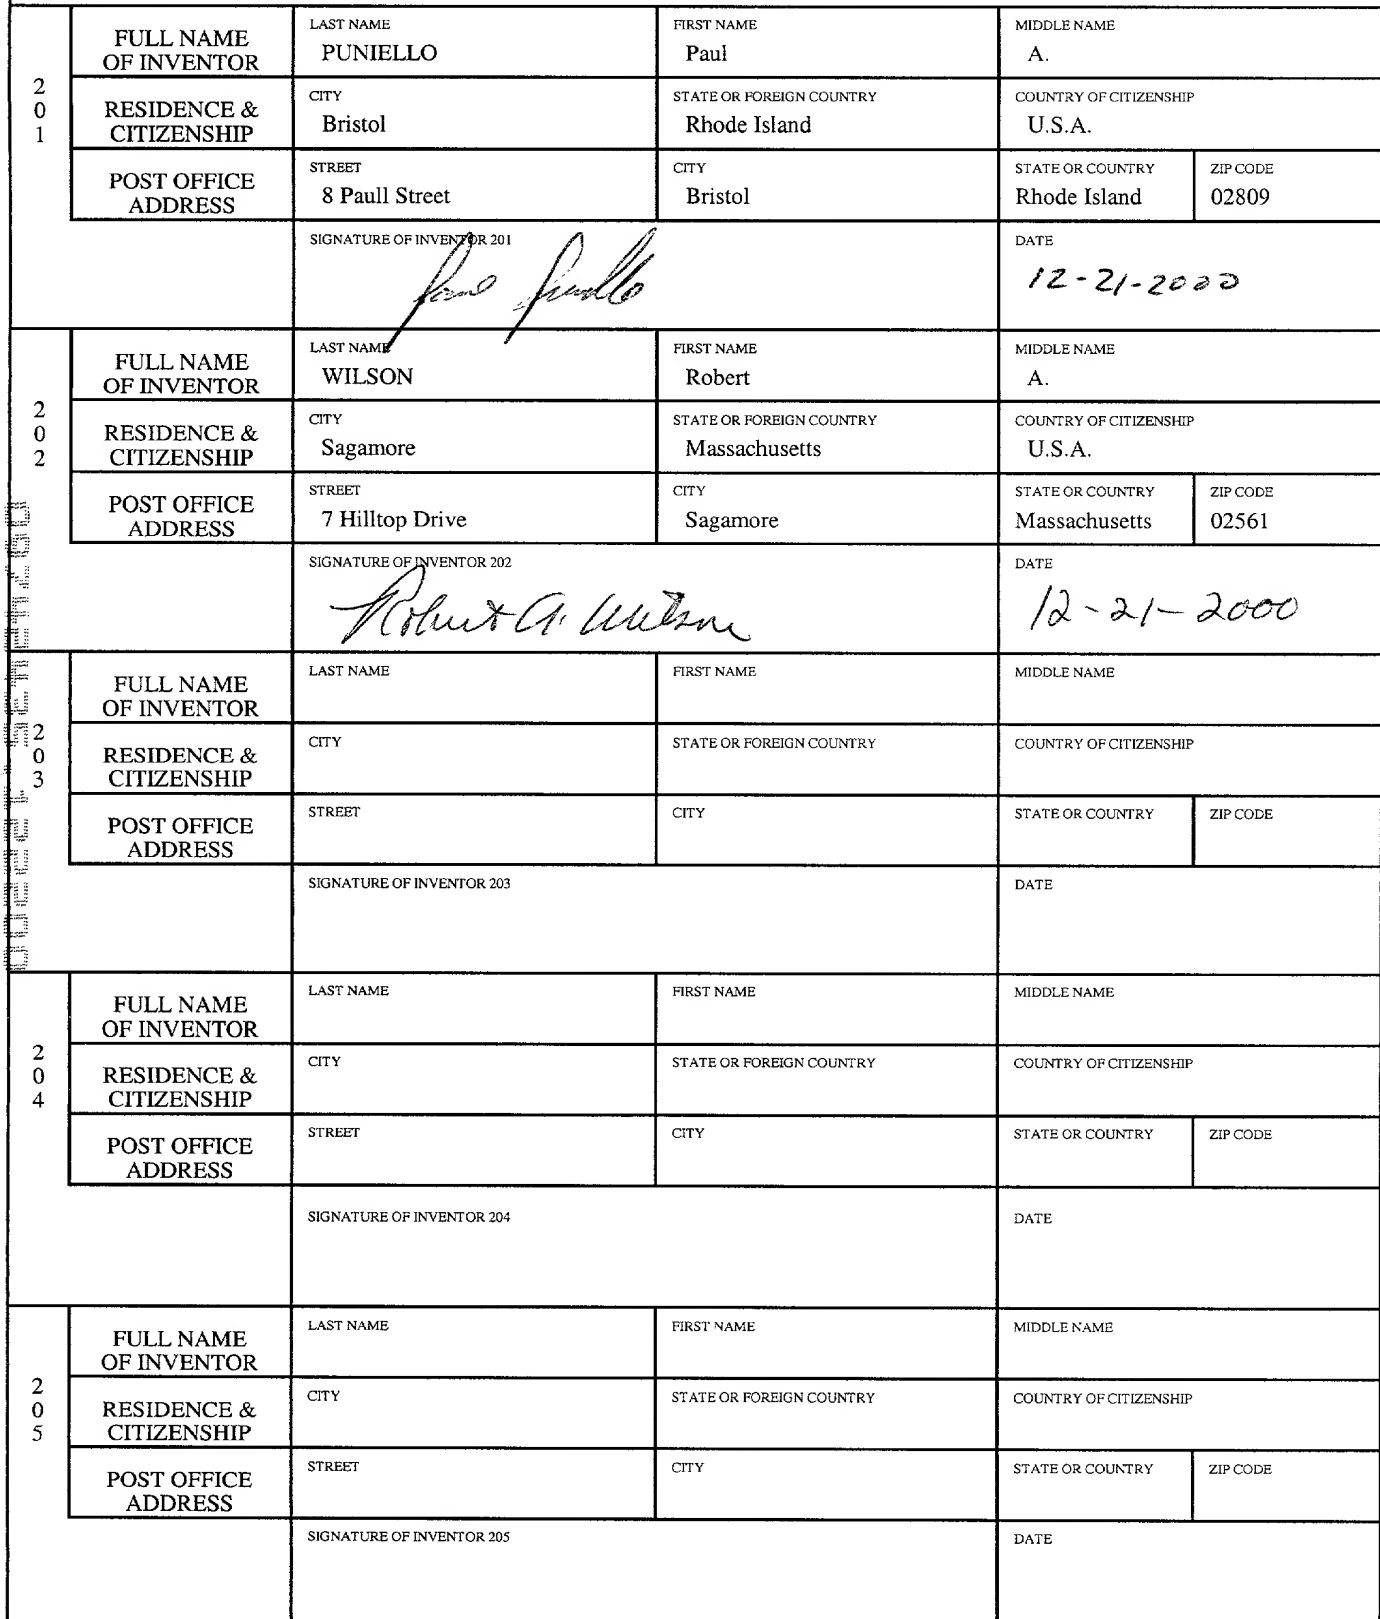 2
0
1
FULL NAME
OF INVENTOR
LAST NAME
PUNIELLO
FIRST NAME
Paul
MIDDLE NAME
A.
RESIDENCE &
CITIZENSHIP
CITY
Bristol
STATE OR FOREIGN COUNTRY
Rhode Island
COUNTRY OF CITIZENSHIP
U.S.A.
POST OFFICE
ADDRESS
STREET
8 Paull Street
CITY
Bristol
STATE OR COUNTRY
Rhode Island
ZIP CODE
02809
SIGNATURE OF INVENTOR 201
DATE
12-21-2000
2
0
2
FULL NAME
OF INVENTOR
LAST NAME
WILSON
FIRST NAME
Robert
MIDDLE NAME
A.
RESIDENCE &
CITIZENSHIP
CITY
Sagamore
STATE OR FOREIGN COUNTRY
Massachusetts
COUNTRY OF CITIZENSHIP
U.S.A.
POST OFFICE
ADDRESS
STREET
7 Hilltop Drive
CITY
Sagamore
STATE OR COUNTRY
Massachusetts
ZIP CODE
02561
SIGNATURE OF INVENTOR 202
Robert A. Wilson
DATE
12-21-2000
2
0
3
FULL NAME
OF INVENTOR
LAST NAME
FIRST NAME
MIDDLE NAME
RESIDENCE &
CITIZENSHIP
CITY
STATE OR FOREIGN COUNTRY
COUNTRY OF CITIZENSHIP
POST OFFICE
ADDRESS
STREET
CITY
STATE OR COUNTRY
ZIP CODE
SIGNATURE OF INVENTOR 203
DATE
2
0
4
FULL NAME
OF INVENTOR
LAST NAME
FIRST NAME
MIDDLE NAME
RESIDENCE &
CITIZENSHIP
CITY
STATE OR FOREIGN COUNTRY
COUNTRY OF CITIZENSHIP
POST OFFICE
ADDRESS
STREET
CITY
STATE OR COUNTRY
ZIP CODE
SIGNATURE OF INVENTOR 204
DATE
2
0
5
FULL NAME
OF INVENTOR
LAST NAME
FIRST NAME
MIDDLE NAME
RESIDENCE &
CITIZENSHIP
CITY
STATE OR FOREIGN COUNTRY
COUNTRY OF CITIZENSHIP
POST OFFICE
ADDRESS
STREET
CITY
STATE OR COUNTRY
ZIP CODE
SIGNATURE OF INVENTOR 205
DATE